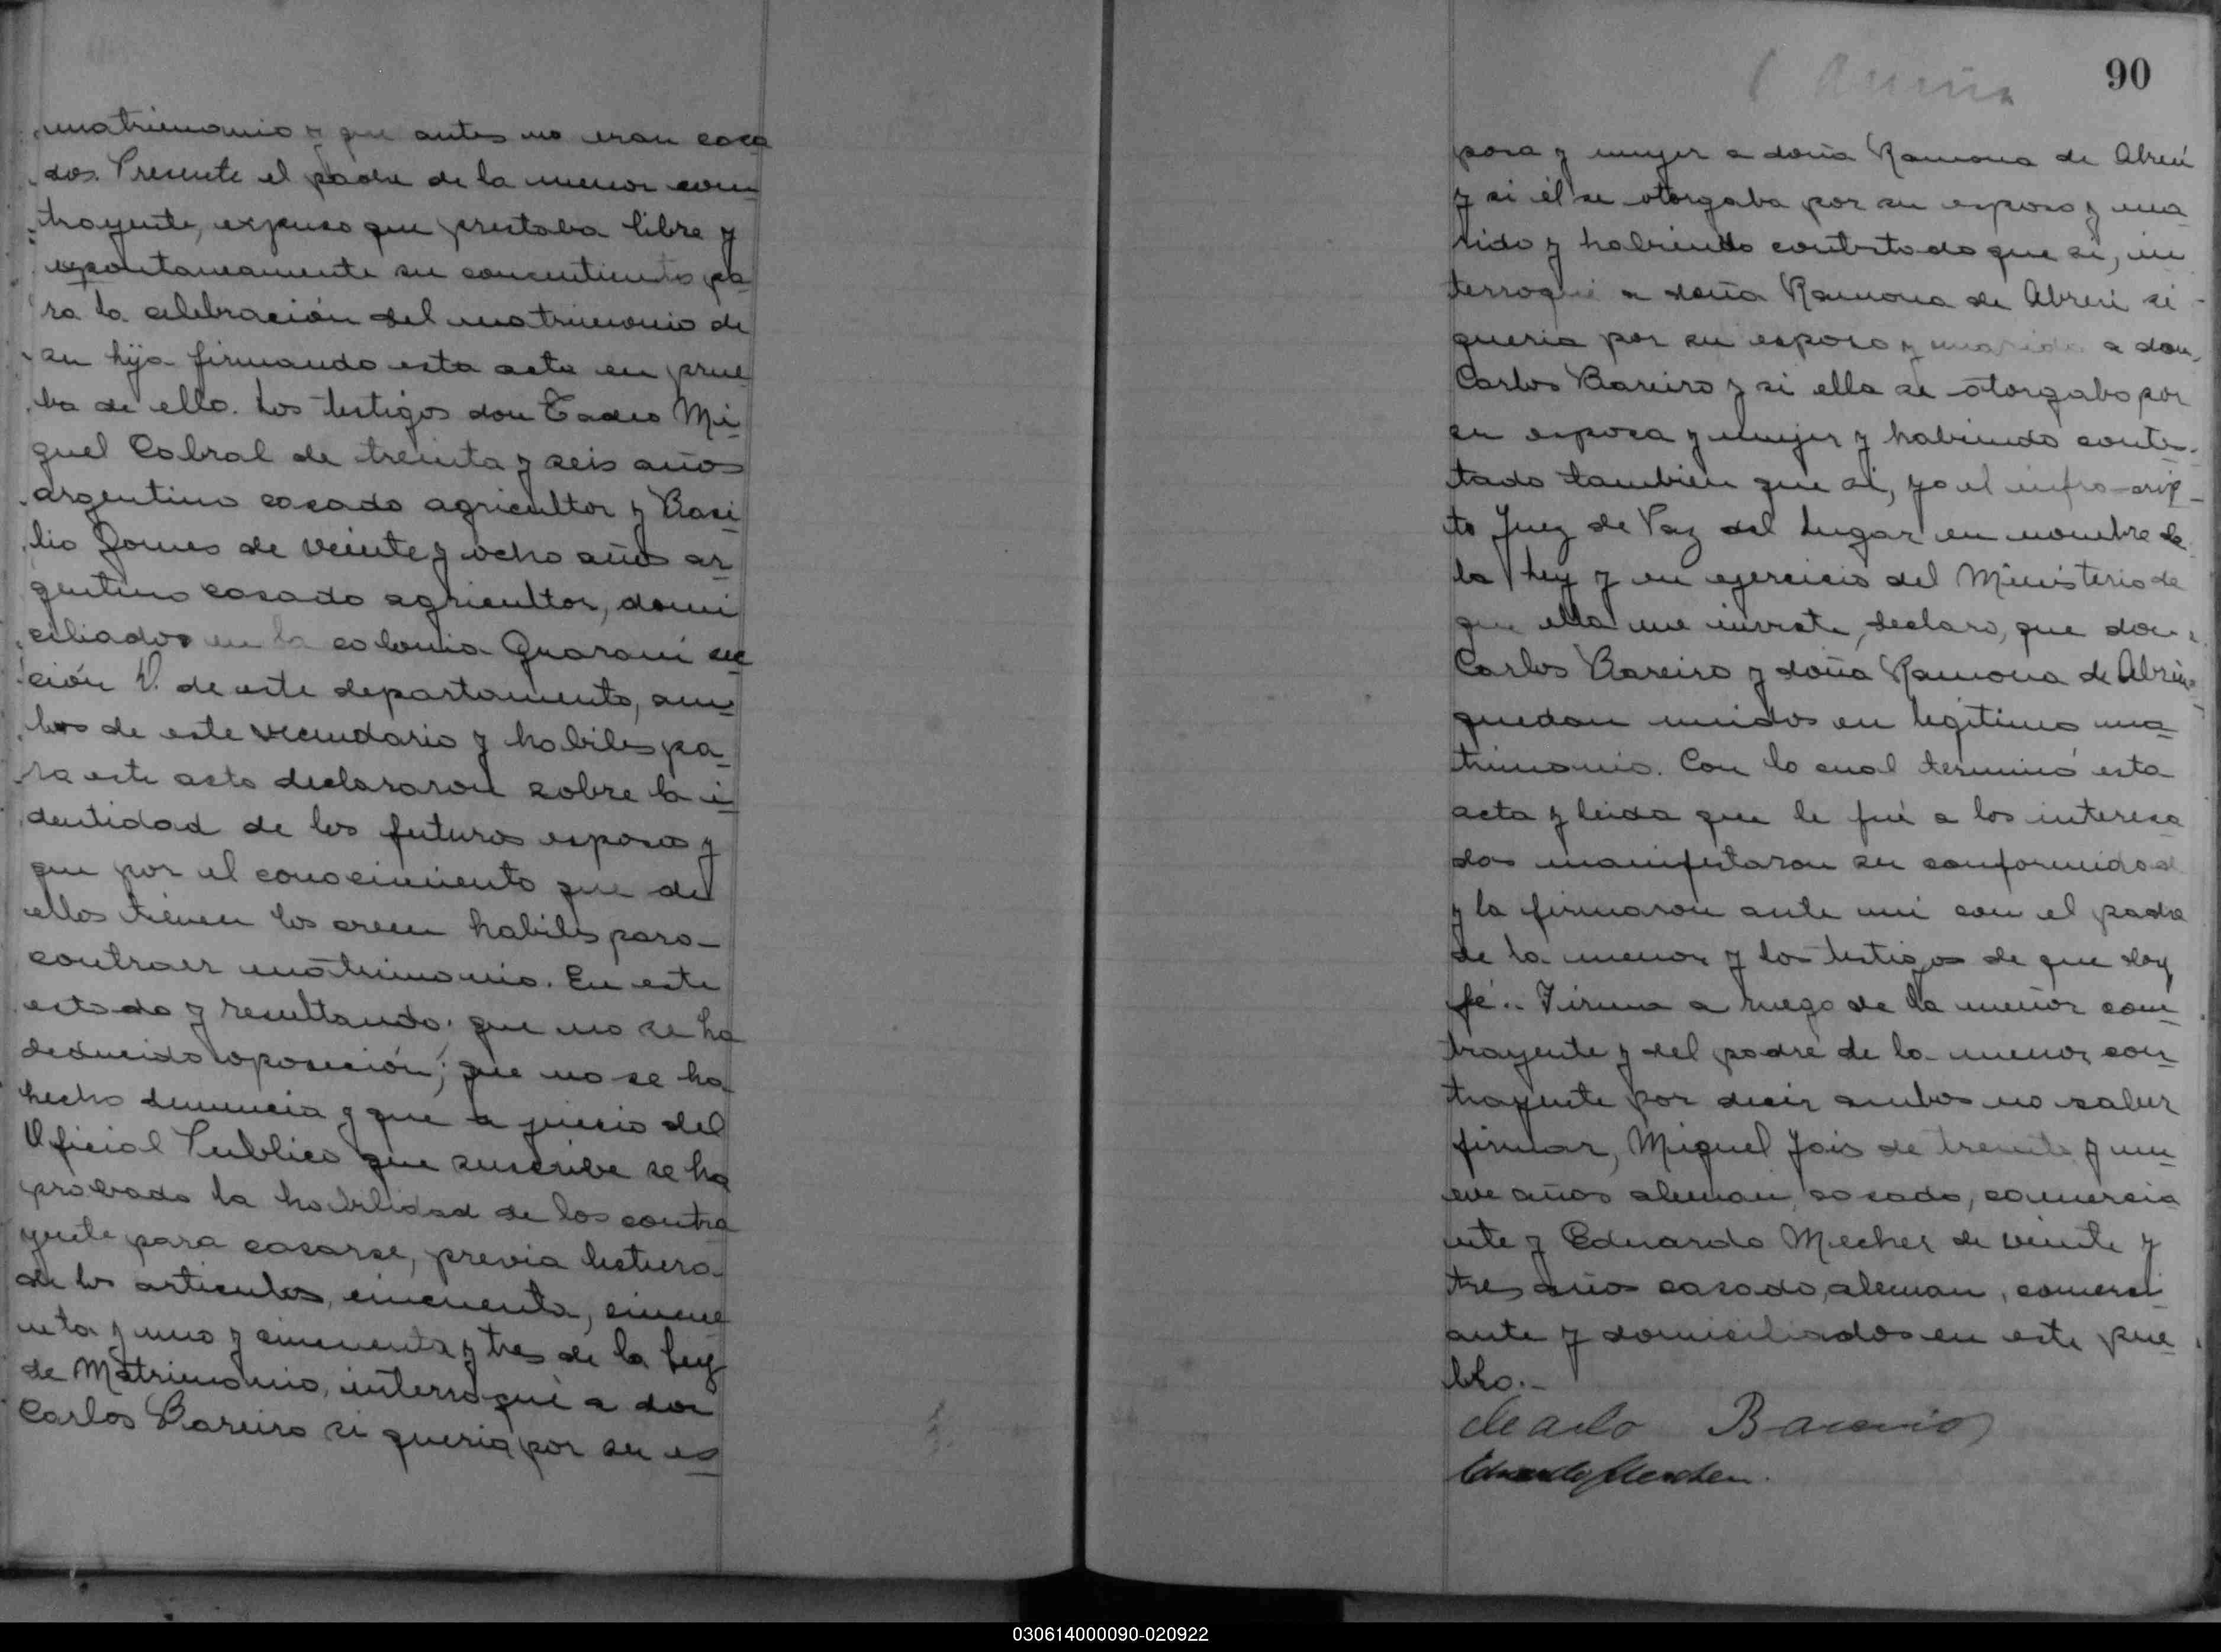 matrimonio y que antes no eran casa
dos. Presente el padre de la menor con
trayente, expuso que prestaba libre y
espontaneamente su concentimiento pa
ra la celebración del matrimonio de
su hija firmando esta acta en prue
ba de ello. Los testigos don Tadeo Mi
guel Cabral de treinta y seis años
argentino casado agricultor y Basi
lio Gomes de veinte y ocho años ar
gentino casado agricultor, domi
ciliados en la colonia Guaraní sec
ción V. de este departamento, am
bos de este vecindario y habiles pa
ra este acto declararon sobre la i
dentidad de los futuros esposos y
que por el conocimiento que de
ellos tienen los creen habiles para
contraer matrimonio. En este
estado y resultando; que no se ha
deducido oposición; que no se ha
hecho denuncia y que a juicio del
Oficial Publico que suscribe se ha
probado la habilidad de los contra
yente para casarse, previa lectura
de los articulos, cincuenta, cincue
nta y uno y cincuenta y tres de la Ley
de Matrimonio, interrogué a don
Carlos Bareiro si queria por su es
90
posa y mujer a doña Ramona de Abreu
y si él se otorgaba por su esposo y ma
rido y habiendo contestado que si, in
terrogué a doña Ramona de Abreu si
queria por su esposo y marido a don
Carlos Bareiro y si ella se otorgaba por
su esposa y mujer y habiendo contes
tado tambien que si, yo el infra-scrip
to Juez de Paz del Lugar en nombre de
la Ley y en ejercicio del Ministerio de
que ella me inviste, declaro, que don
Carlos Bareiro y doña Ramona de Abreu
quedan unidos en legítimo ma
trimonio. Con lo cual terminó esta
acta y leida que le fué a los interesa
dos manifestaron su conformidad
y la firmaron ante mi con el padre
de la menor y los testigos de que doy
fé.. Firma a ruego de la menor con
trayente y del padre de la menor con
trayente por decir ambos no saber
firmar, Miguel Jois de treinta y nu
eve años aleman, casado, comercia
nte y Eduardo Mecher de veinte y
tres años casado, aleman, comerci
ante y domiciliados en este pue
blo.-
Bareiro
Eduardo
030614000090-020922